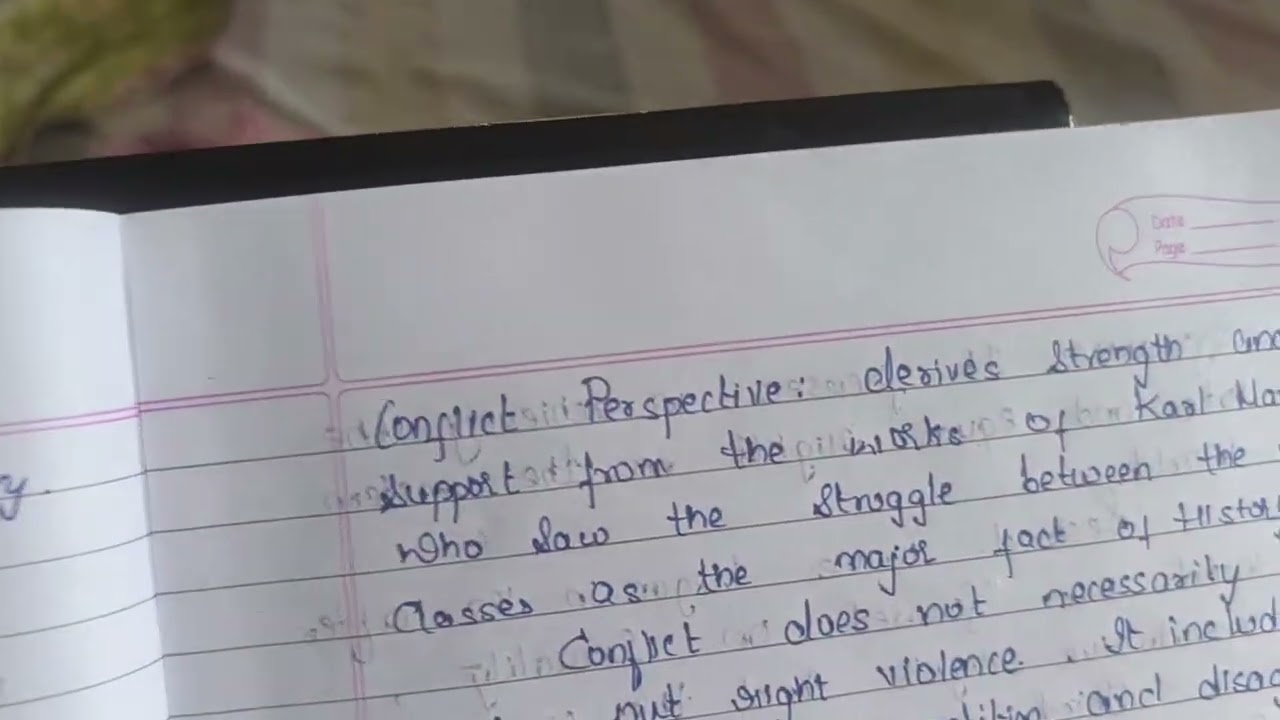 Date
Page
Conflict Perspective: derives strength and
support from the works of Karl Ma
who saw the struggle between the
Classes as the major fact of Histor
y.
Conflict does not necessarily
out right violence. It includ
and disag